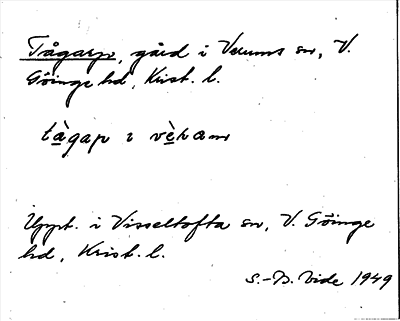 Tågarp, gård i Verums sn, V.
Göinge hd, Krist. l.
tàgap i vèham
Uppt. i Visseltofta sn, V. Göinge
hd, Krist. l.
S.-B. Vide 1949